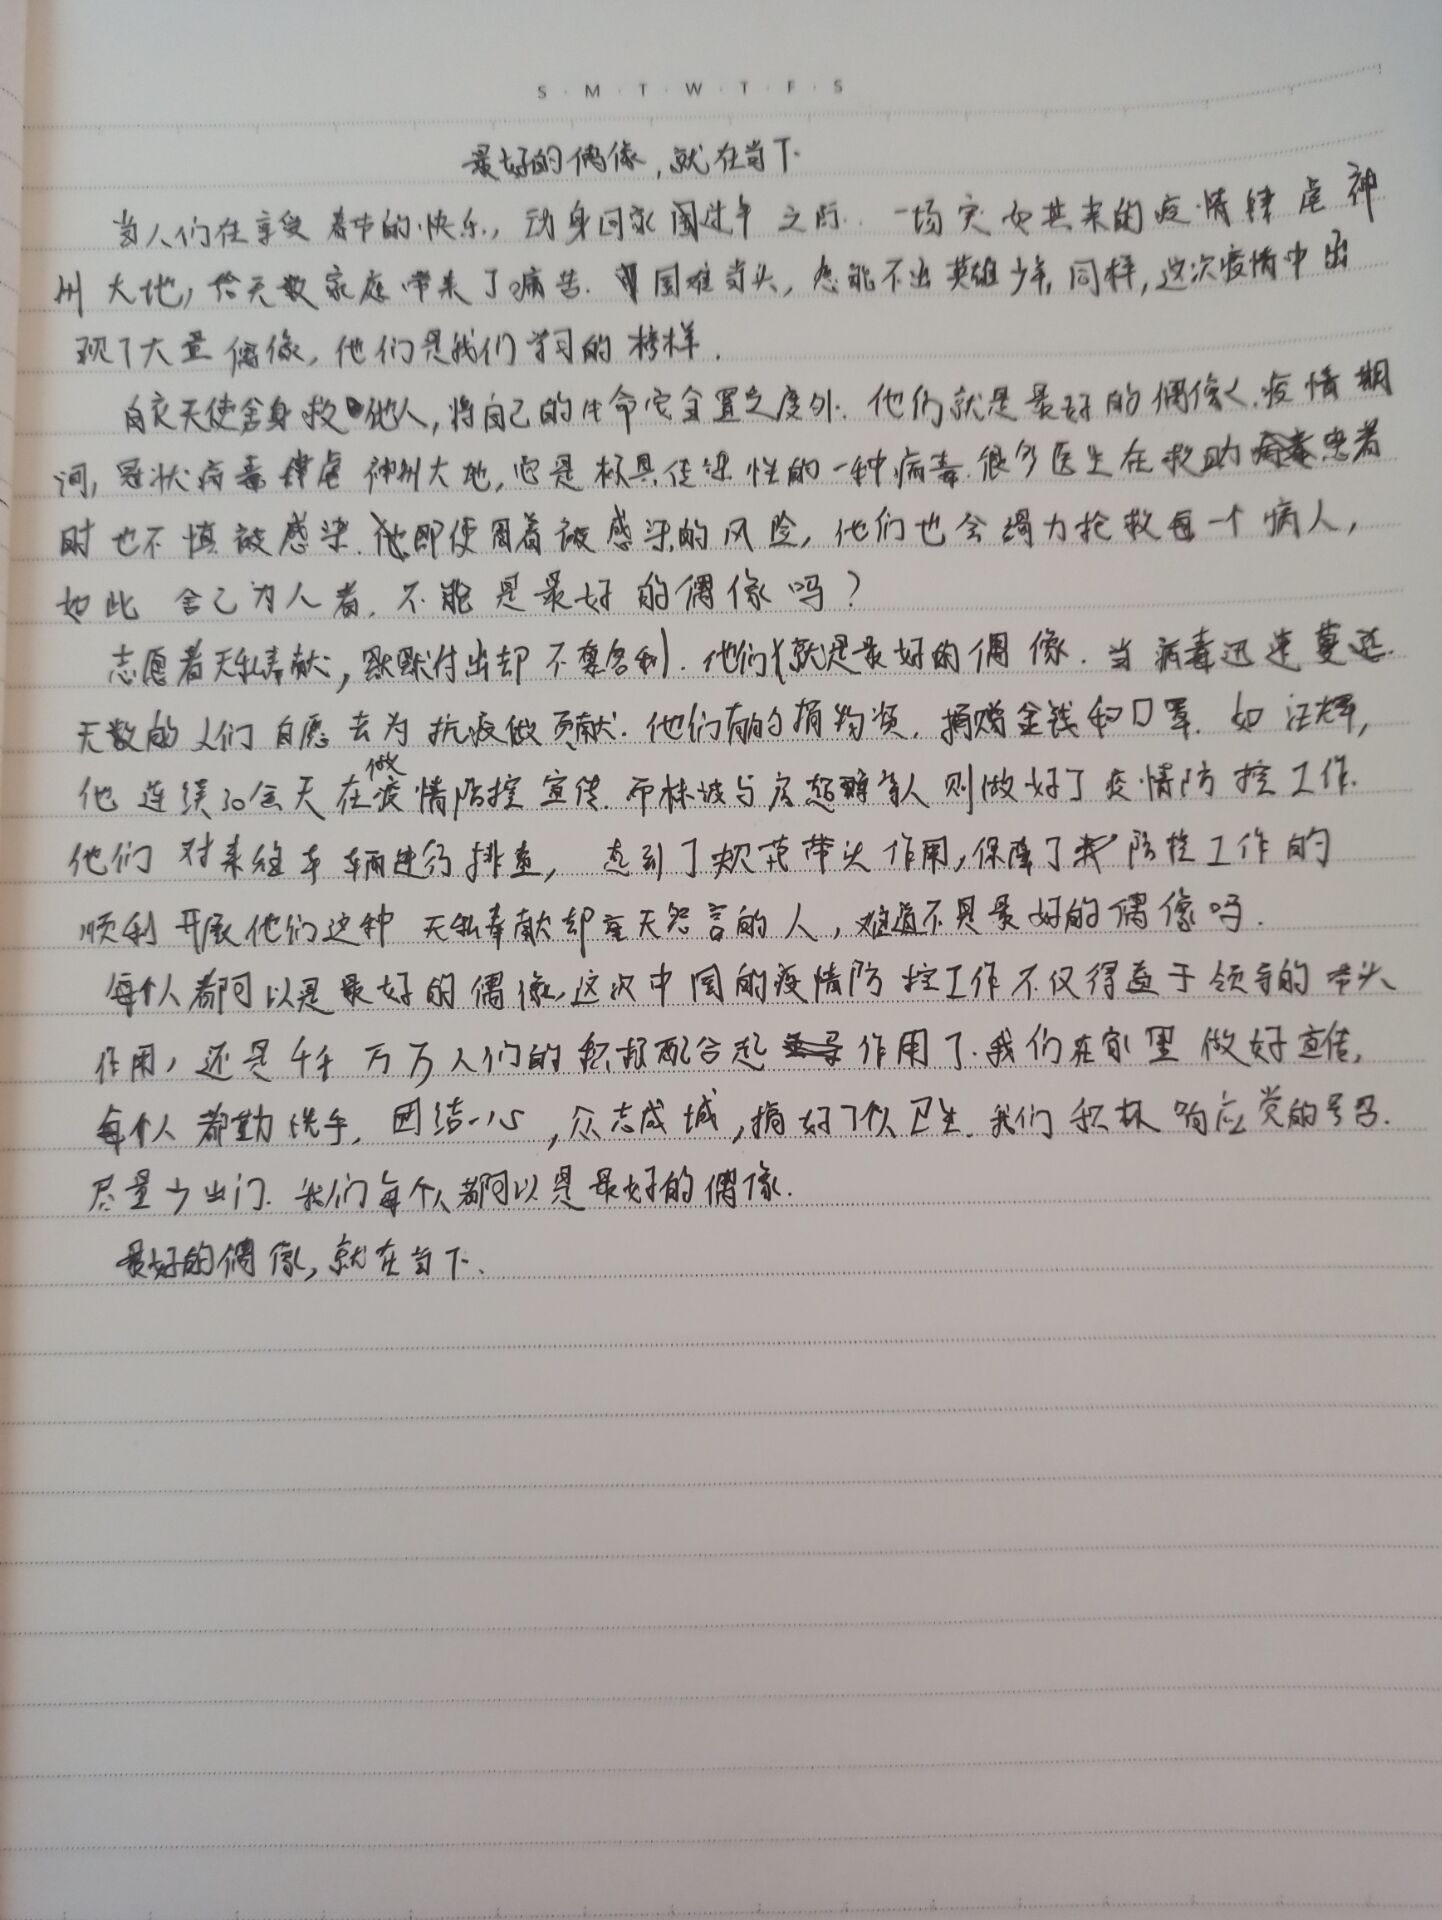 S M T W T F S
最好的偶像,就在当下.
当人们在享受春节的快乐,动身回家团过年之际.一场突如其来的疫情肆虐神
州大地,给无数家庭带来了痛苦.国难当头,怎能不出英雄少年,同样,这次疫情中出
现了大量偶像,他们是我们学习的榜样.
白衣天使舍身救他人,将自己的生命安全置之度外.他们就是最好的偶像.疫情期
间,冠状病毒肆虐神州大地,它是极具传染性的一种病毒.很多医生在救助患者
时也不慎被感染.即使冒着被感染的风险,他们也会竭力抢救每一个病人,
如此舍己为人者.不能是最好的偶像吗?
志愿者无私奉献,默默付出却不慕名利.他们就是最好的偶像.当病毒迅速蔓延.
无数的人们自愿去为抗疫做贡献.他们有的捐物资,捐赠金钱和口罩.如汪辉,
他连续30余天在做疫情防控宣传.而林波与等人则做好了疫情防控工作.
他们对来往车辆进行排查,起到了规范带头作用,保障了防控工作的
顺利开展他们这种无私奉献却毫无怨言的人,难道不是最好的偶像吗.
每个人都可以是最好的偶像,这次中国的疫情防控工作不仅得益于领导的带头
作用,还是千千万万人们的积极配合起作用了.我们在家里做好宣传,
每个人都勤洗手.团结一心,众志成城,搞好个人卫生.我们积极响应党的号召.
尽量少出门.我们每个人都可以是最好的偶像.
最好的偶像,就在当下.